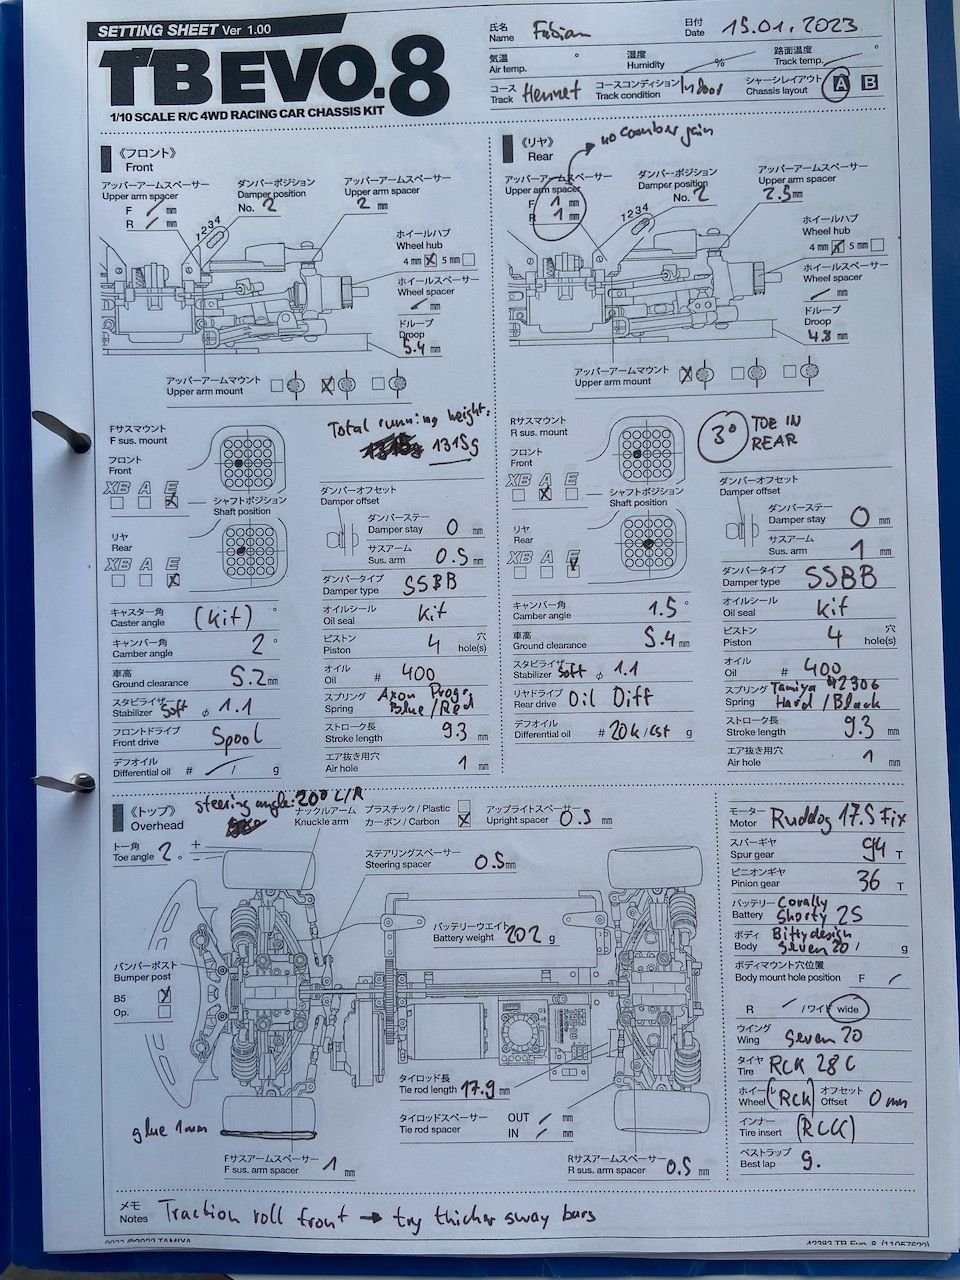 SETTING SHEET Ver 1.00
TB EVO.8
1/10 SCALE R/C 4WD RACING CAR CHASSIS KIT
氏名
Name Fabian
日付
Date 15.01.2023
気温
Air temp. °
湿度
Humidity %
路面温度
Track temp. °
コース
Track Hemmet
コースコンディション
Track condition Indoor
シャーシレイアウト
Chassis layout A B
《フロント》
Front
アッパーアームスペーサー
Upper arm spacer
F / mm
R / mm
ダンパーポジション
Damper position
No. 2
1 2 3 4
アッパーアームスペーサー
Upper arm spacer
2 mm
ホイールハブ
Wheel hub
4 mm 5 mm
ホイールスペーサー
Wheel spacer
/ mm
ドループ
Droop
5.4 mm
アッパーアームマウント
Upper arm mount
《リヤ》
Rear
no camber gain
アッパーアームスペーサー
Upper arm spacer
F 1 mm
R 1 mm
ダンパーポジション
Damper position
No. 2
1 2 3 4
アッパーアームスペーサー
Upper arm spacer
2.5 mm
ホイールハブ
Wheel hub
4 mm 5 mm
ホイールスペーサー
Wheel spacer
/ mm
ドループ
Droop
4.8 mm
アッパーアームマウント
Upper arm mount
Fサスマウント
F sus. mount
フロント
Front
XB A E
シャフトポジション
Shaft position
リヤ
Rear
XB A E
Total running weight:
1315g
ダンパーオフセット
Damper offset
ダンパーステー
Damper stay 0 mm
サスアーム
Sus. arm 0.5 mm
ダンパータイプ
Damper type SSBB
オイルシール
Oil seal kit
ピストン 穴
Piston 4 hole(s)
オイル
Oil # 400
スプリング
Spring Axon Progr. Blue/Red
ストローク長
Stroke length 9.3 mm
エア抜き用穴
Air hole 1 mm
キャスター角
Caster angle (kit) °
キャンバー角
Camber angle 2 °
車高
Ground clearance 5.2 mm
スタビライザー
Stabilizer Soft φ 1.1
フロントドライブ
Front drive Spool
デフオイル
Differential oil # / / g
Rサスマウント
R sus. mount
フロント
Front
XB A E
シャフトポジション
Shaft position
リヤ
Rear
XB A E
3° TOE IN
REAR
ダンパーオフセット
Damper offset
ダンパーステー
Damper stay 0 mm
サスアーム
Sus. arm 1 mm
ダンパータイプ
Damper type SSBB
オイルシール
Oil seal kit
ピストン 穴
Piston 4 hole(s)
オイル
Oil # 400
スプリング Tamiya 42306
Spring Hard / Black
ストローク長
Stroke length 9.3 mm
エア抜き用穴
Air hole 1 mm
キャンバー角
Camber angle 1.5 °
車高
Ground clearance 5.4 mm
スタビライザー
Stabilizer Soft φ 1.1
リヤドライブ
Rear drive Oil Diff
デフオイル
Differential oil # 20k/cst g
《トップ》
Overhead
steering angle: 20° L/R
ナックルアーム
Knuckle arm
プラスチック / Plastic
カーボン / Carbon
アップライトスペーサー
Upright spacer 0.5 mm
トー角
Toe angle 2 °
+
−
ステアリングスペーサー
Steering spacer 0.5 mm
バッテリーウエイト
Battery weight 202 g
バンパーポスト
Bumper post
B5
Op.
タイロッド長
Tie rod length 17.9 mm
タイロッドスペーサー
Tie rod spacer
OUT / mm
IN / mm
glue 1mm
Fサスアームスペーサー
F sus. arm spacer 1 mm
Rサスアームスペーサー
R sus. arm spacer 0.5 mm
モーター
Motor Ruddog 17.5 Fix
スパーギヤ
Spur gear 94 T
ピニオンギヤ
Pinion gear 36 T
バッテリー Corally
Battery Shorty 2S
ボディ Bittydesign
Body Seven20 / g
ボディマウント穴位置
Body mount hole position F /
R / / ワイド wide
ウイング
Wing Seven 20
タイヤ
Tire RCK 28C
ホイール
Wheel (RCK)
オフセット
Offset 0 mm
インナー
Tire insert (RCK)
ベストラップ
Best lap 9.
メモ
Notes Traction roll front → try thicker sway bars
0922 ©2022 TAMIYA
42383 TB Evo. 8 (11057622)